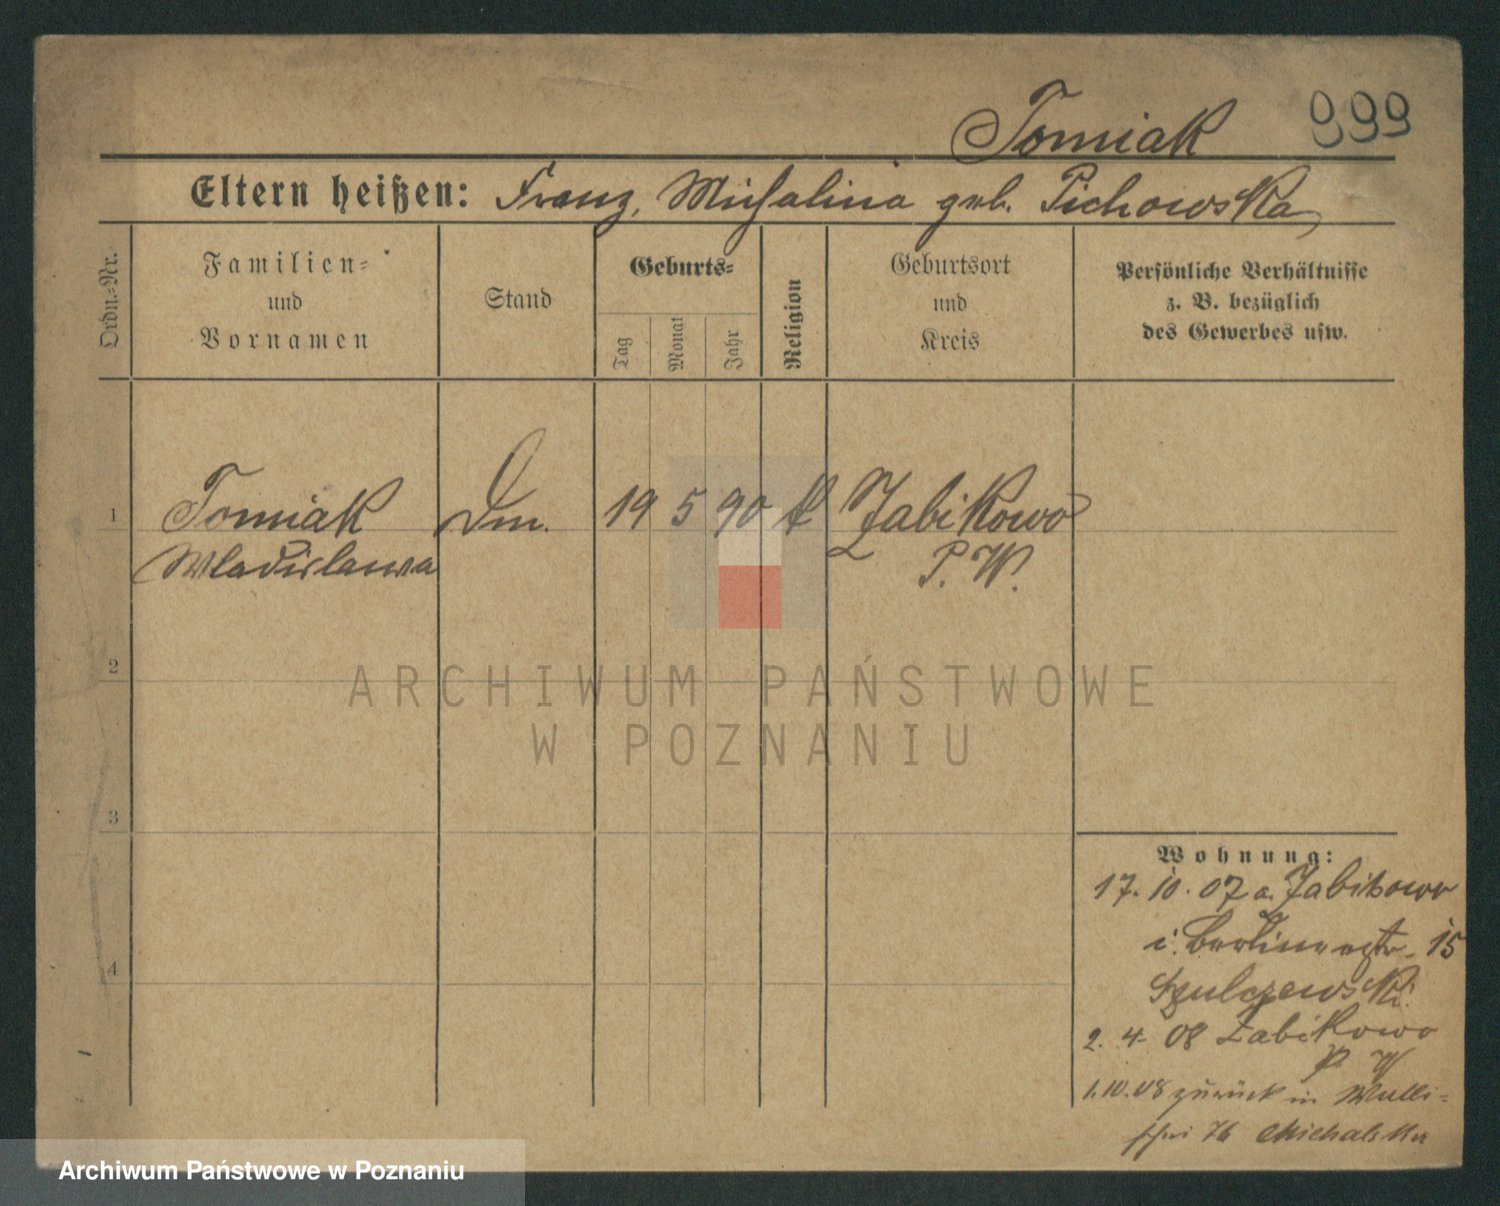 Tomiak 999
Eltern heißen: Franz, Michalina geb. Pichowska
Ordn.-Nr.
Familien-
und
Vornamen
Stand
Geburts-
Tag
Monat
Jahr
Religion
Geburtsort
und
Kreis
Persönliche Verhältnisse
z. B. bezüglich
des Gewerbes usw.
1 Tomiak Dm. 19 5 90 k Zabikowo
Wladislawa P. W.
2
3
4
Wohnung:
17. 10. 07 a. Zabikowo
i. Berlinerstr. 15
Szulczewski.
2. 4. 08 Zabikowo
P. W
1.10.08 zurück in
Michalska
ARCHIWUM PAŃSTWOWE
W POZNANIU
Archiwum Państwowe w Poznaniu